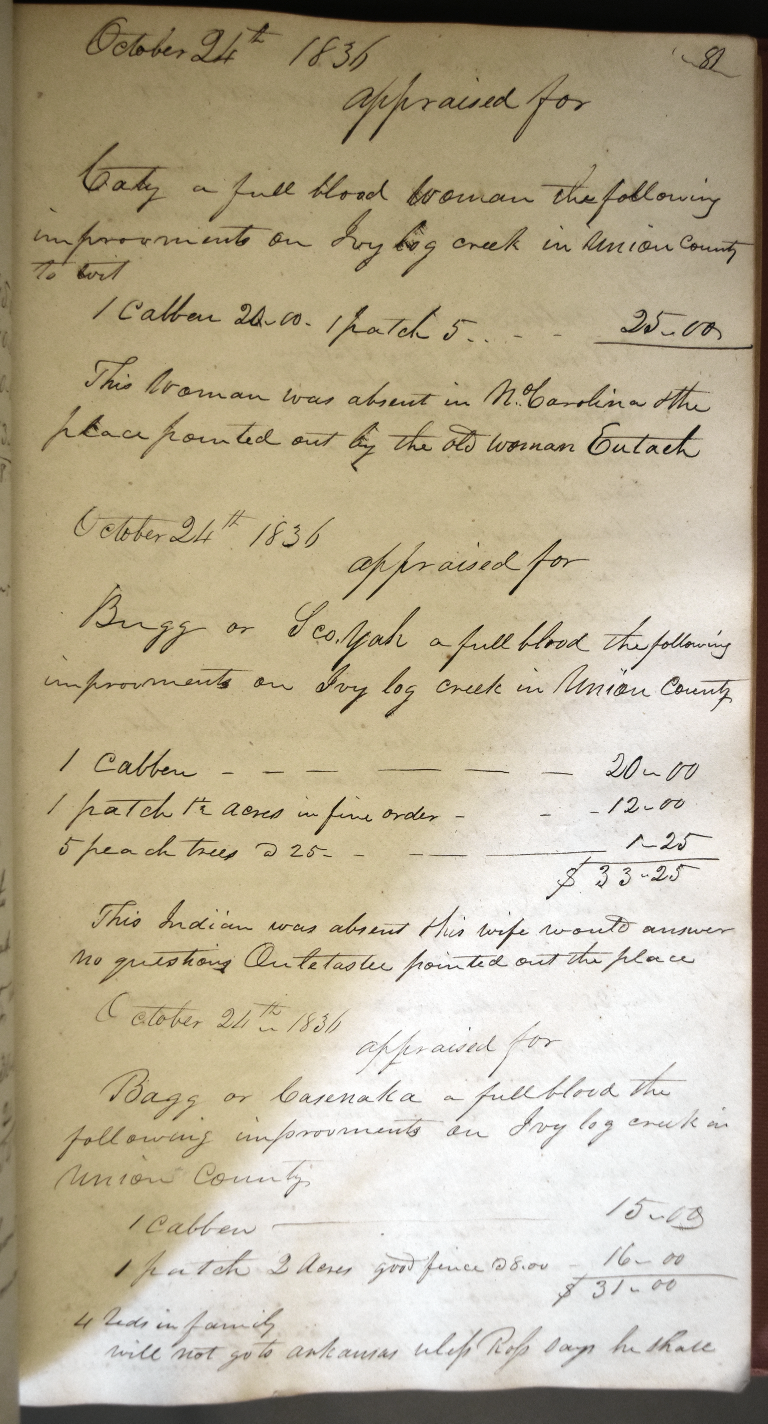 October 24th 1836
81
appraised for
Caty a full blood woman the following
improvments on Ivy log creek in Union County
to wit
1 Cabben 20.00. 1 patch 5... - - 25.00
This Woman was absent in No Carolina & the
place pointed out by the old woman Eutach
October 24th 1836
appraised for
Bugg or Sco.Yah a full blood the following
improvments on Ivy log creek in Union County
1 Cabben - - - - - - 20-00
1 patch acres in fine order - - - 12-00
5 peach trees @ 25 - - - 1-25
$ 33-25
This Indian was absent & his wife would answer
no questions Outetaslee pointed out the place
October 24th 1836
appraised for
Bagg or Casenaka a full blood the
following improvments on Ivy log creek in
Union County
1 Cabben - 15-00
1 patch 2 Acres good fence @ 8.00 - 16-00
$ 31-00
4 reds in family
will not go to arkansas uless Ross says he shall